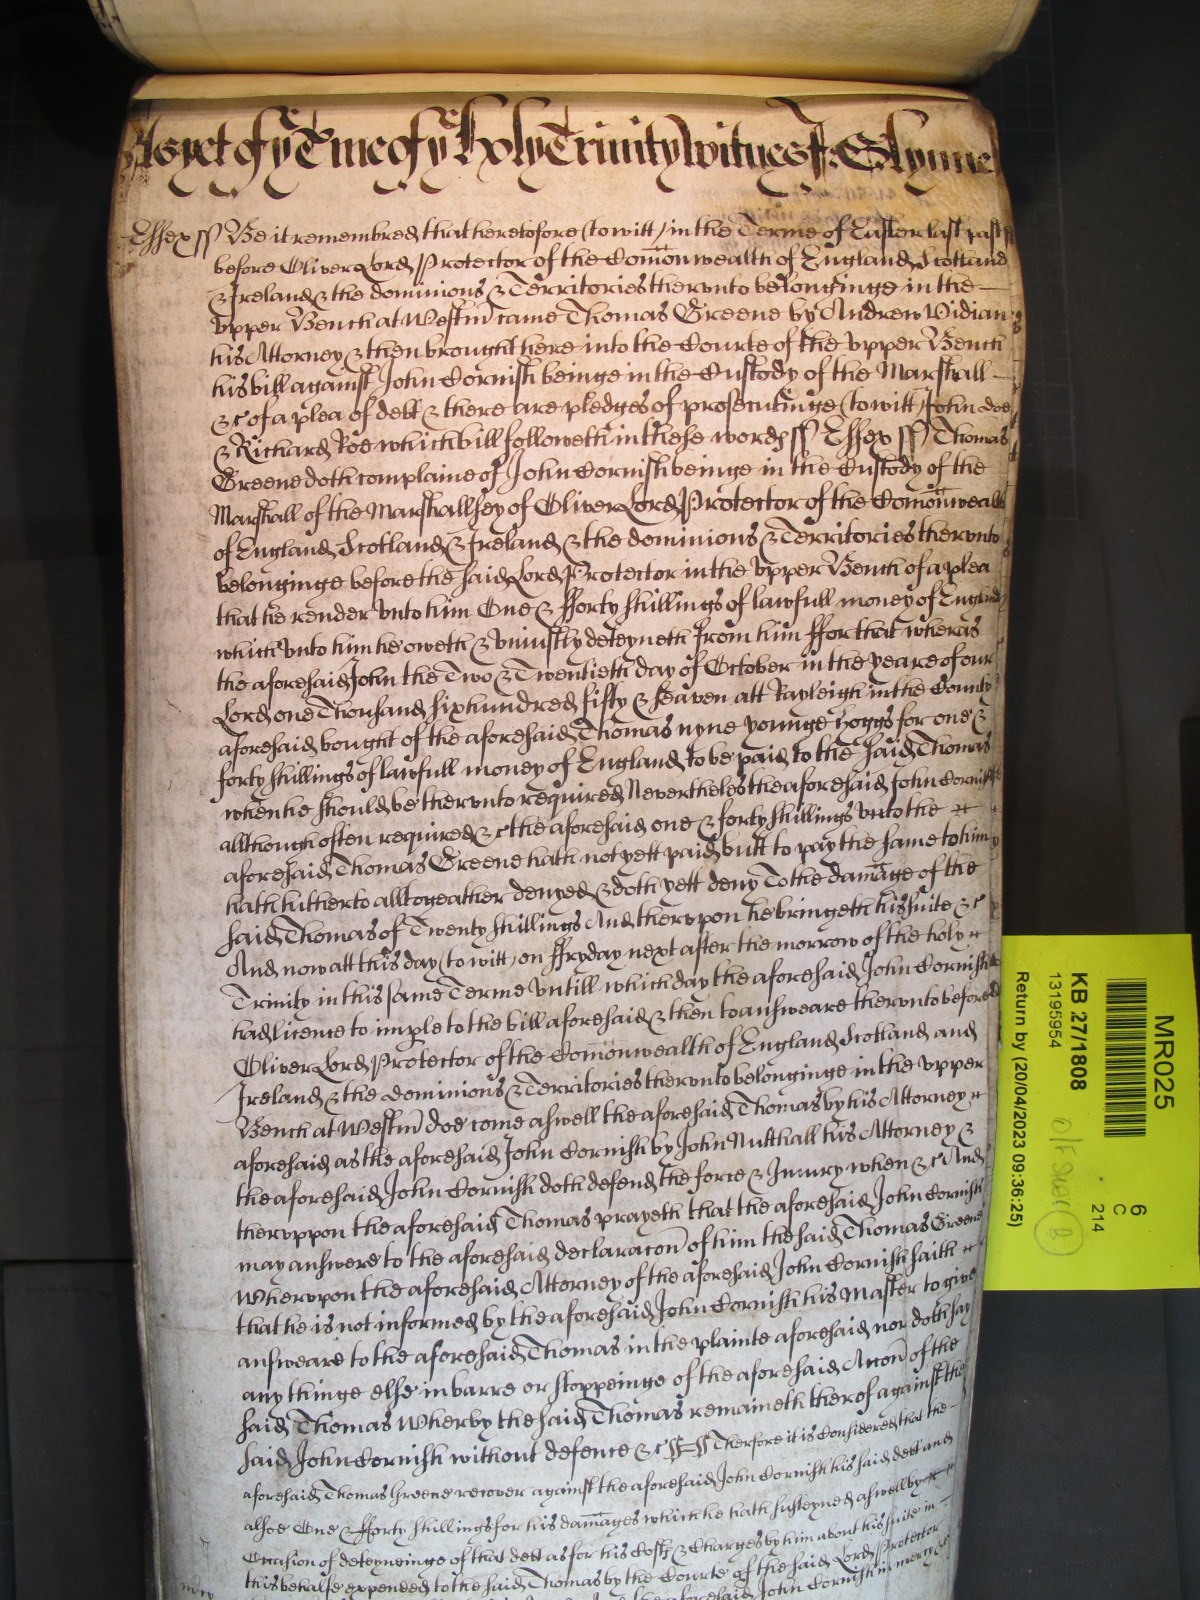 As yet of ye Tme of ye holy Trinity witnes J: Glynne
Essex ss Be it remembred that heretofore (to witt) in the Terme of Easter last past
before Oliver Lord Protector of the Comonwealth of England Scotland
& Ireland & the dominions & Territories therunto belonginge in the
upper Bench at Westm came Thomas Greene by Andrew Vidian
his Attorney & then brought here into the Courte of the upper Bench
his bill against John Cornish beinge in the Custody of the Marshall
&c of a plea of debt & there are pledges of prosecutinge (to witt) John doe
& Richard Roe which bill followeth in these words ss Essex ss Thomas
Greene doth complaine of John Cornish beinge in the Custody of the
Marshall of the Marshallsey of Oliver Lord Protector of the Comonwealth
of England Scotland & Ireland & the dominions & Territories therunto
belonginge before the said Lord Protector in the upper Bench of a plea
that he render unto him One & fforty shillings of lawfull money of England
which unto him he oweth & uniustly deteyneth from him ffor that wheras
the aforesaid John the Two & Twentieth day of October in the yeare of our
Lord one Thousand six hundred fifty & seaven att Rayleigh in the County
aforesaid bought of the aforesaid Thomas nyne younge hoggs for one &
forty shillings of lawfull money of England to be paid to the said Thomas
when he should be therunto required Nevertheles the aforesaid John Cornish
allthough often required &c the aforesaid one & forty shillings unto the
aforesaid Thomas Greene hath not yett paid butt to pay the same to him
hath hitherto alltogeather denyed & doth yett deny To the damage of the
said Thomas of Twenty shillings And therupon he bringeth his suite &c
And now att this day (to witt) on ffryday next after the morrow of the holy
Trinity in this same Terme untill which day the aforesaid John Cornish
had licence to imple to the bill aforesaid & then to answeare therunto before
Oliver Lord Protector of the Comonwealth of England Scotland and
Ireland & the dominions & Territories therunto belonginge in the upper
Bench at Westm doe come aswell the aforesaid Thomas by his Attorney
aforesaid as the aforesaid John Cornish by John Nutthall his Attorney &
the aforesaid John Cornish doth defend the force & Iniury when &c And
theruppon the aforesaid Thomas prayeth that the aforesaid John Cornish
may answere to the aforesaid declaracon of him the said Thomas Greene
Wherupon the aforesaid Attorney of the aforesaid John Cornish saith
that he is not informed by the aforesaid John Cornish his Master to give
answeare to the aforesaid Thomas in the plainte aforesaid nor doth say
any thinge else in barre or stoppeinge of the aforesaid Accon of the
said Thomas Wherby the said Thomas remaineth therof against the
said John Cornish without defence &c Therfore it is Considered that the
aforesaid Thomas Greene recover against the aforesaid John Cornish his said debt and
alsoe One & fforty shillings for his damages which he hath susteyned aswell by
Occasion of deteyneinge of that debt as for his Costs & Charges by him about his suite in
this behalfe expended to the said Thomas by the Courte of the said Lord Protector
aforesaid John Cornish in mercy &c
MR025
6
C
214
KB 27/1808
13195954
Return by (20/04/2023 09:36:25)